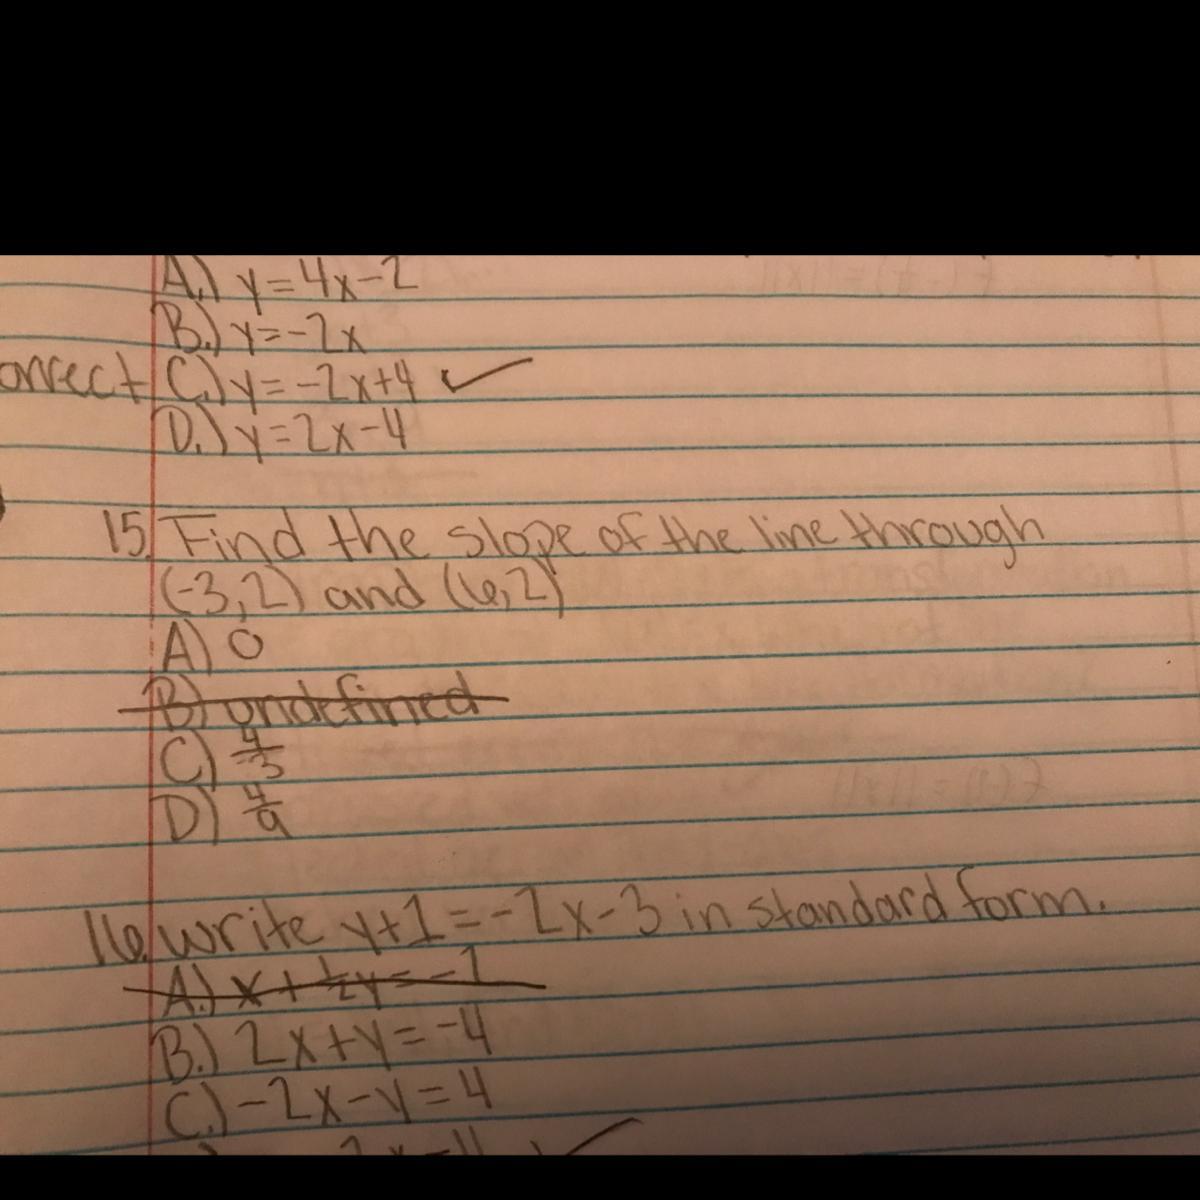 A.) y=4x-2
B.) y=-2x
orrect C.) y=-2x+4 ✓
D.) y=2x-4
15. Find the slope of the line through
(-3,2) and (6,2)
A) 0
B) undefined
C) 4/-3
D) 4/9
16. Write y+1=-2x-3 in standard form.
A.) x+½y=-1
B.) 2x+y=-4
C.) -2x-y=4